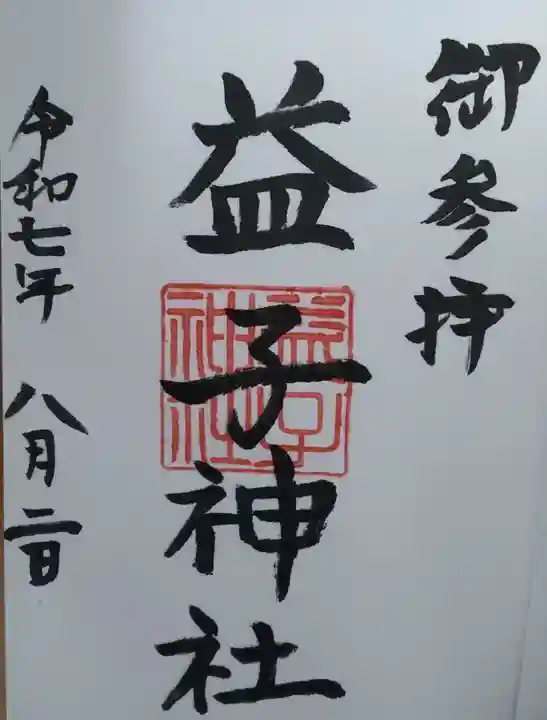 御参拝
益子神社
益子神社
令和七年 八月二日